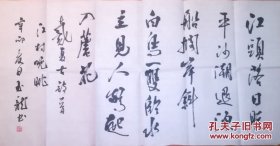 江頭落日照
平沙潮退漁
船擱岸斜
白鳥一雙臨水
立見人驚起
入蘆花
江村晚眺
辛卯夏日玉龍書